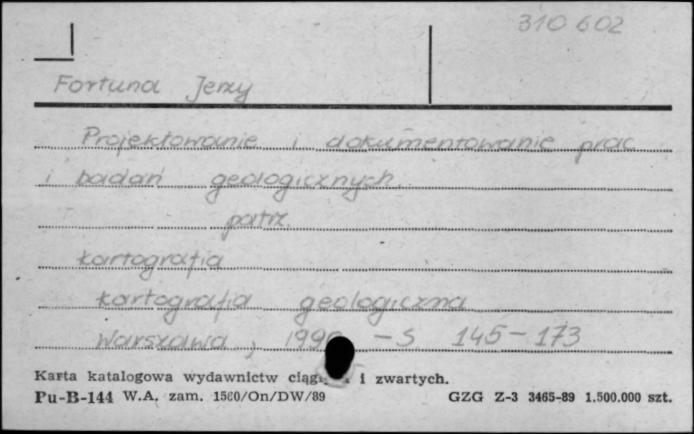 310 602
Fortuna Jerzy
Projektowanie i dokumentowanie prac
i badań geologicznych.
patrz.
kartografia
kartografia geologiczna
Warszawa, - S 145-173
Karta katalogowa wydawnictw i zwartych.
Pu-B-144 W.A. zam. 1560/On/DW/89 GZG Z-3 3465-89 1.500.000 szt.